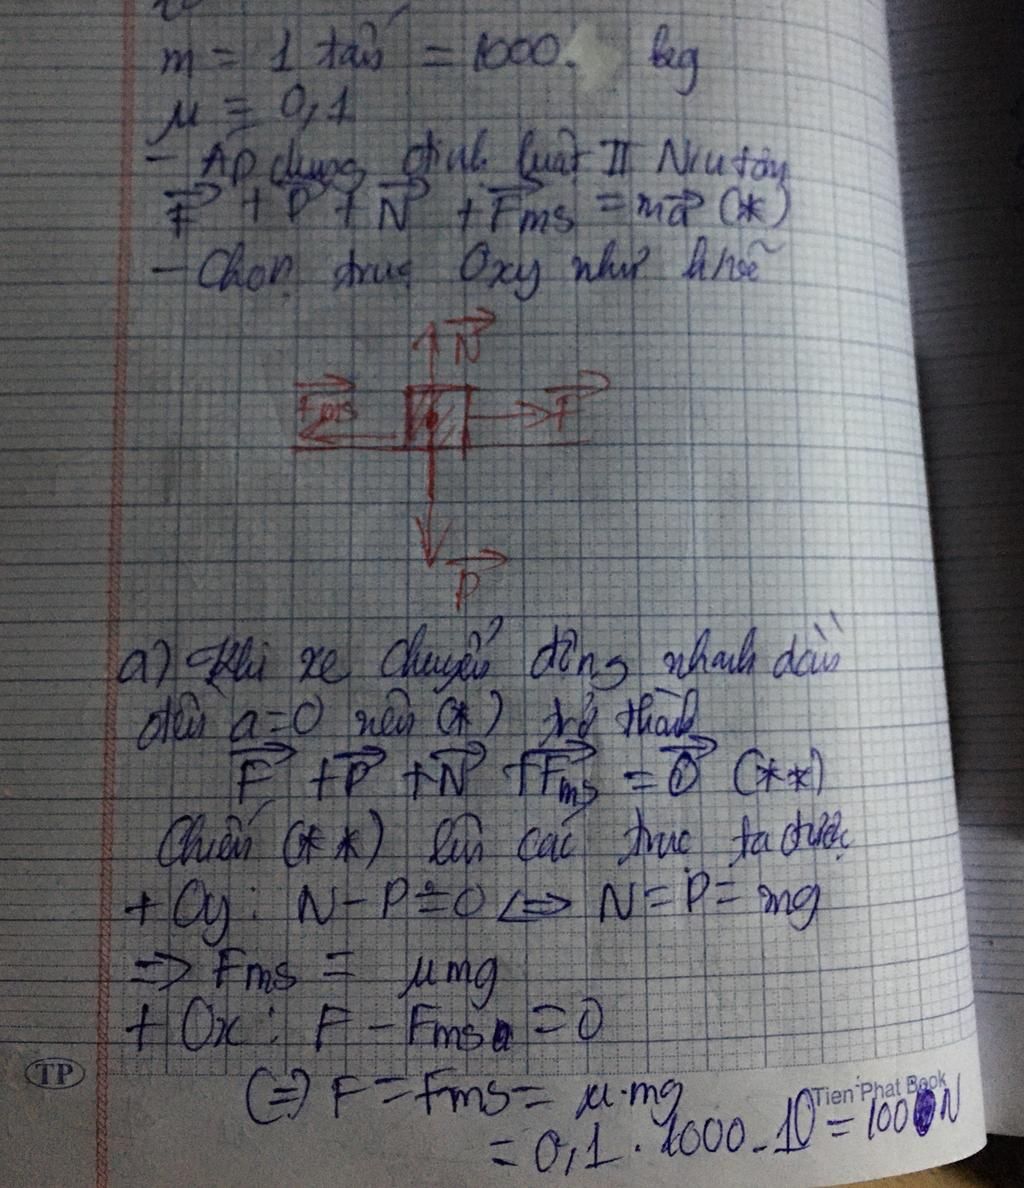 m = 1 tấn = 1000 kg
μ = 0,1
- Áp dụng định luật II Niutơn
F + P + N + Fms = ma (*)
- Chọn trục Oxy như h/vẽ
N
Fms
F
P
a) Khi xe chuyển động nhanh dần
đều a=0 nên (*) trở thành
F + P + N + Fms = 0 (**)
Chiếu (**) lên các trục ta được
+ Oy: N - P = 0 <=> N = P = mg
=> Fms = μmg
+ Ox: F - Fms = 0
(=) F = Fms = μ.mg
TP Tien Phat Book
= 0,1 . 1000 . 10 = 1000N